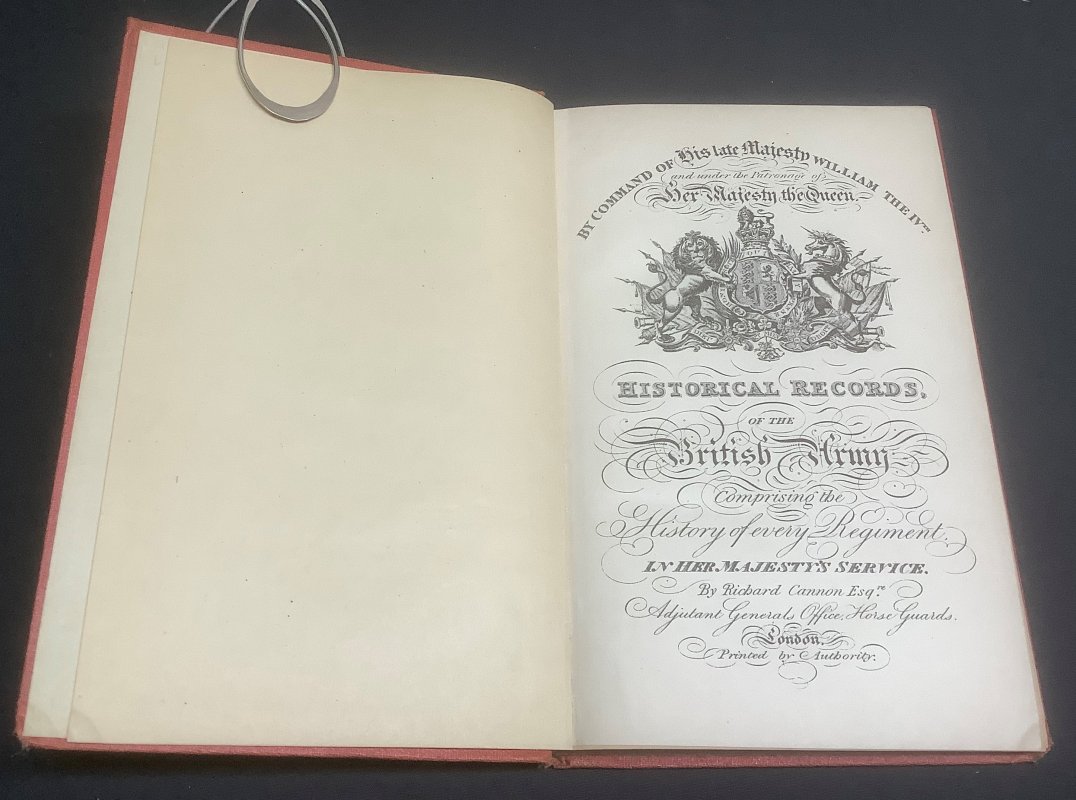 BY COMMAND OF His late Majesty WILLIAM THE IVTH
and under the Patronage of
Her Majesty the Queen.
HISTORICAL RECORDS,
OF THE
British Army
Comprising the
History of every Regiment
IN HER MAJESTY'S SERVICE.
By Richard Cannon Esqre.
Adjutant Generals Office, Horse Guards.
London.
Printed by Authority.